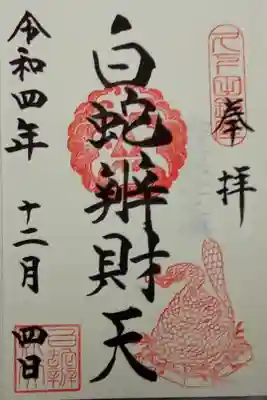 奉拝
白蛇辨財天
令和四年 十二月 四日